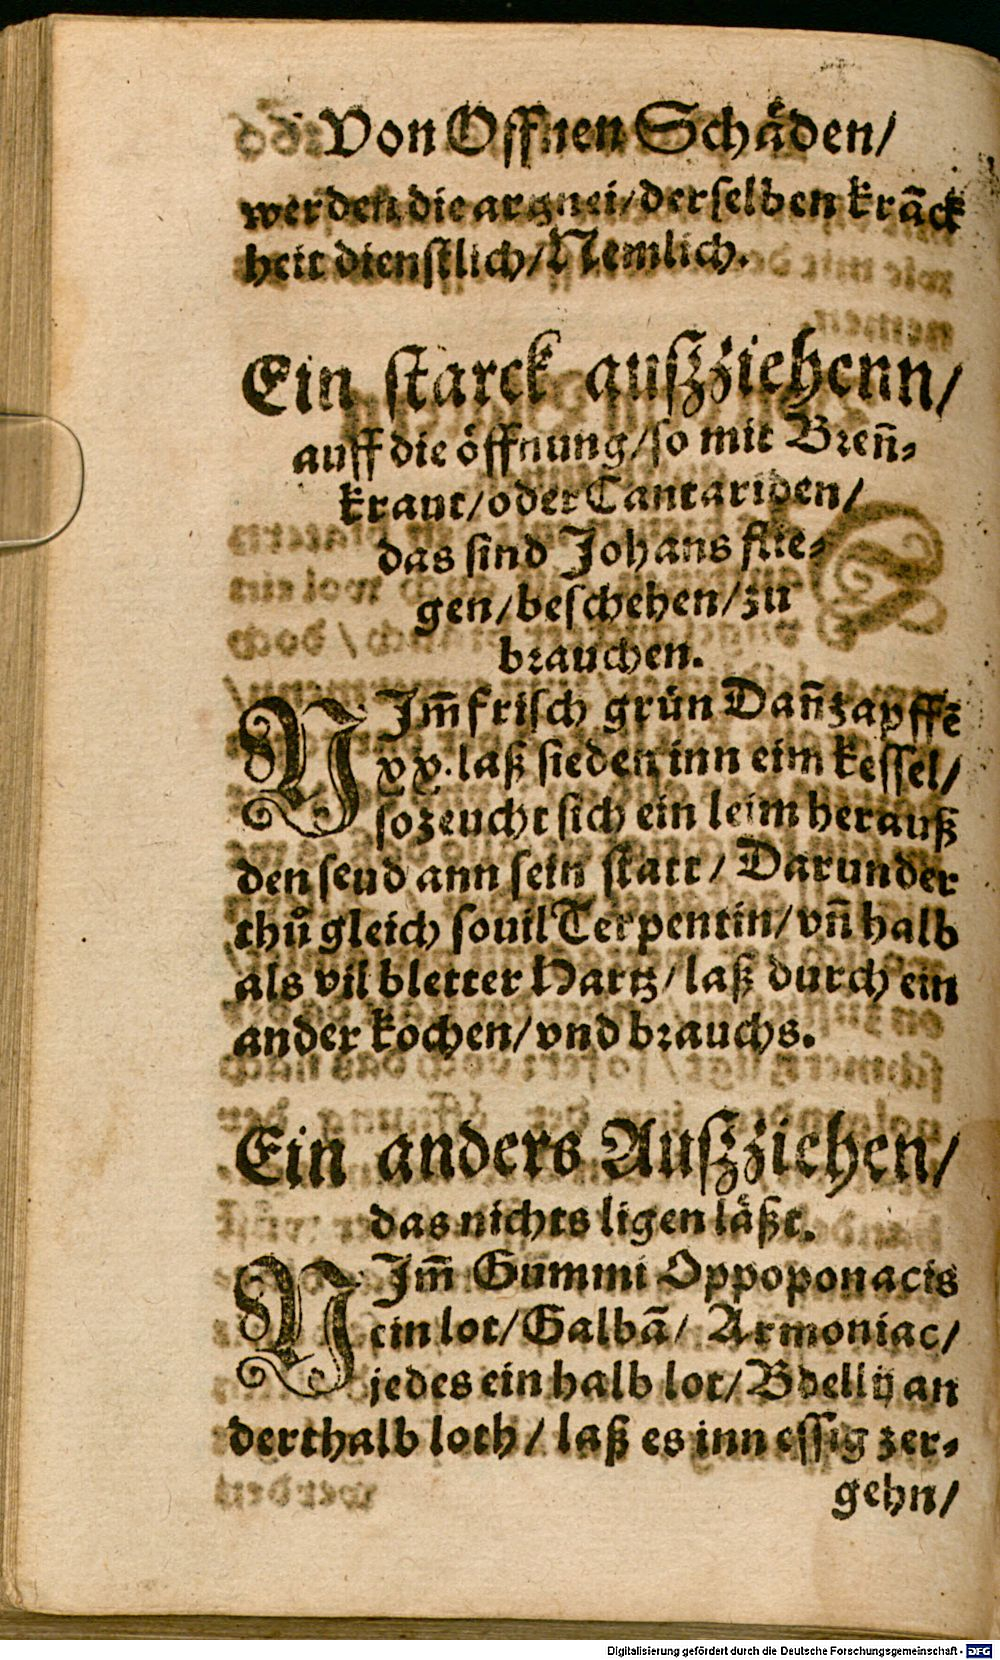 Von Offnen Schåden/
werden die artznei/derselben krãck
heit dienstlich/Nemlich.
Ein starck außziehenn/
auff die öffnung/so mit Breñ-
kraut/oder Cantariden/
das sind Johans flie-
gen/beschehen/zu
brauchen.
NIm̃ frisch grün Dañzapffẽ
xx. laß sieden inn eim kessel/
so zeucht sich ein leim herauß
den seud ann sein statt/ Darunder
thů gleich souil Terpentin/ vñ halb
als vil bletter Hartz/ laß durch ein
ander kochen/ vnd brauchs.
Ein anders Außziehen/
das nichts ligen låßt.
NIm̃ Gummi Oppoponacis
ein lot/ Galbã/ Armoniac/
jedes ein halb lot/ Bdellij an
derthalb loth/ laß es inn essig zer-
gehn/
Digitalisierung gefördert durch die Deutsche Forschungsgemeinschaft - DFG